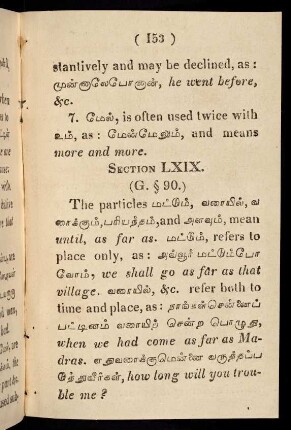 ( 153 )
stantively and may be declined, as :
முன்னாலேபோனான், he went before,
&c.
7. மேல், is often used twice with
உம், as : மேன்மேலும், and means
more and more.
SECTION LXIX.
(G. § 90.)
The particles மட்டும், வரையில், வ
ரைக்கும், பரியந்தம், and அளவும், mean
until, as far as. மட்டும், refers to
place only, as : அவ்வூர் மட்டும்போ
வோம்; we shall go as far as that
village. வரையில், &c. refer both to
time and place, as : நாங்கள்சென்னைப்
பட்டினம் வரையிற் சென்ற பொழுது,
when we had come as far as Ma-
dras. எதுவரைக்குமென்னை வருத்தப்ப
டுத்துவீர்கள், how long will you trou-
ble me ?